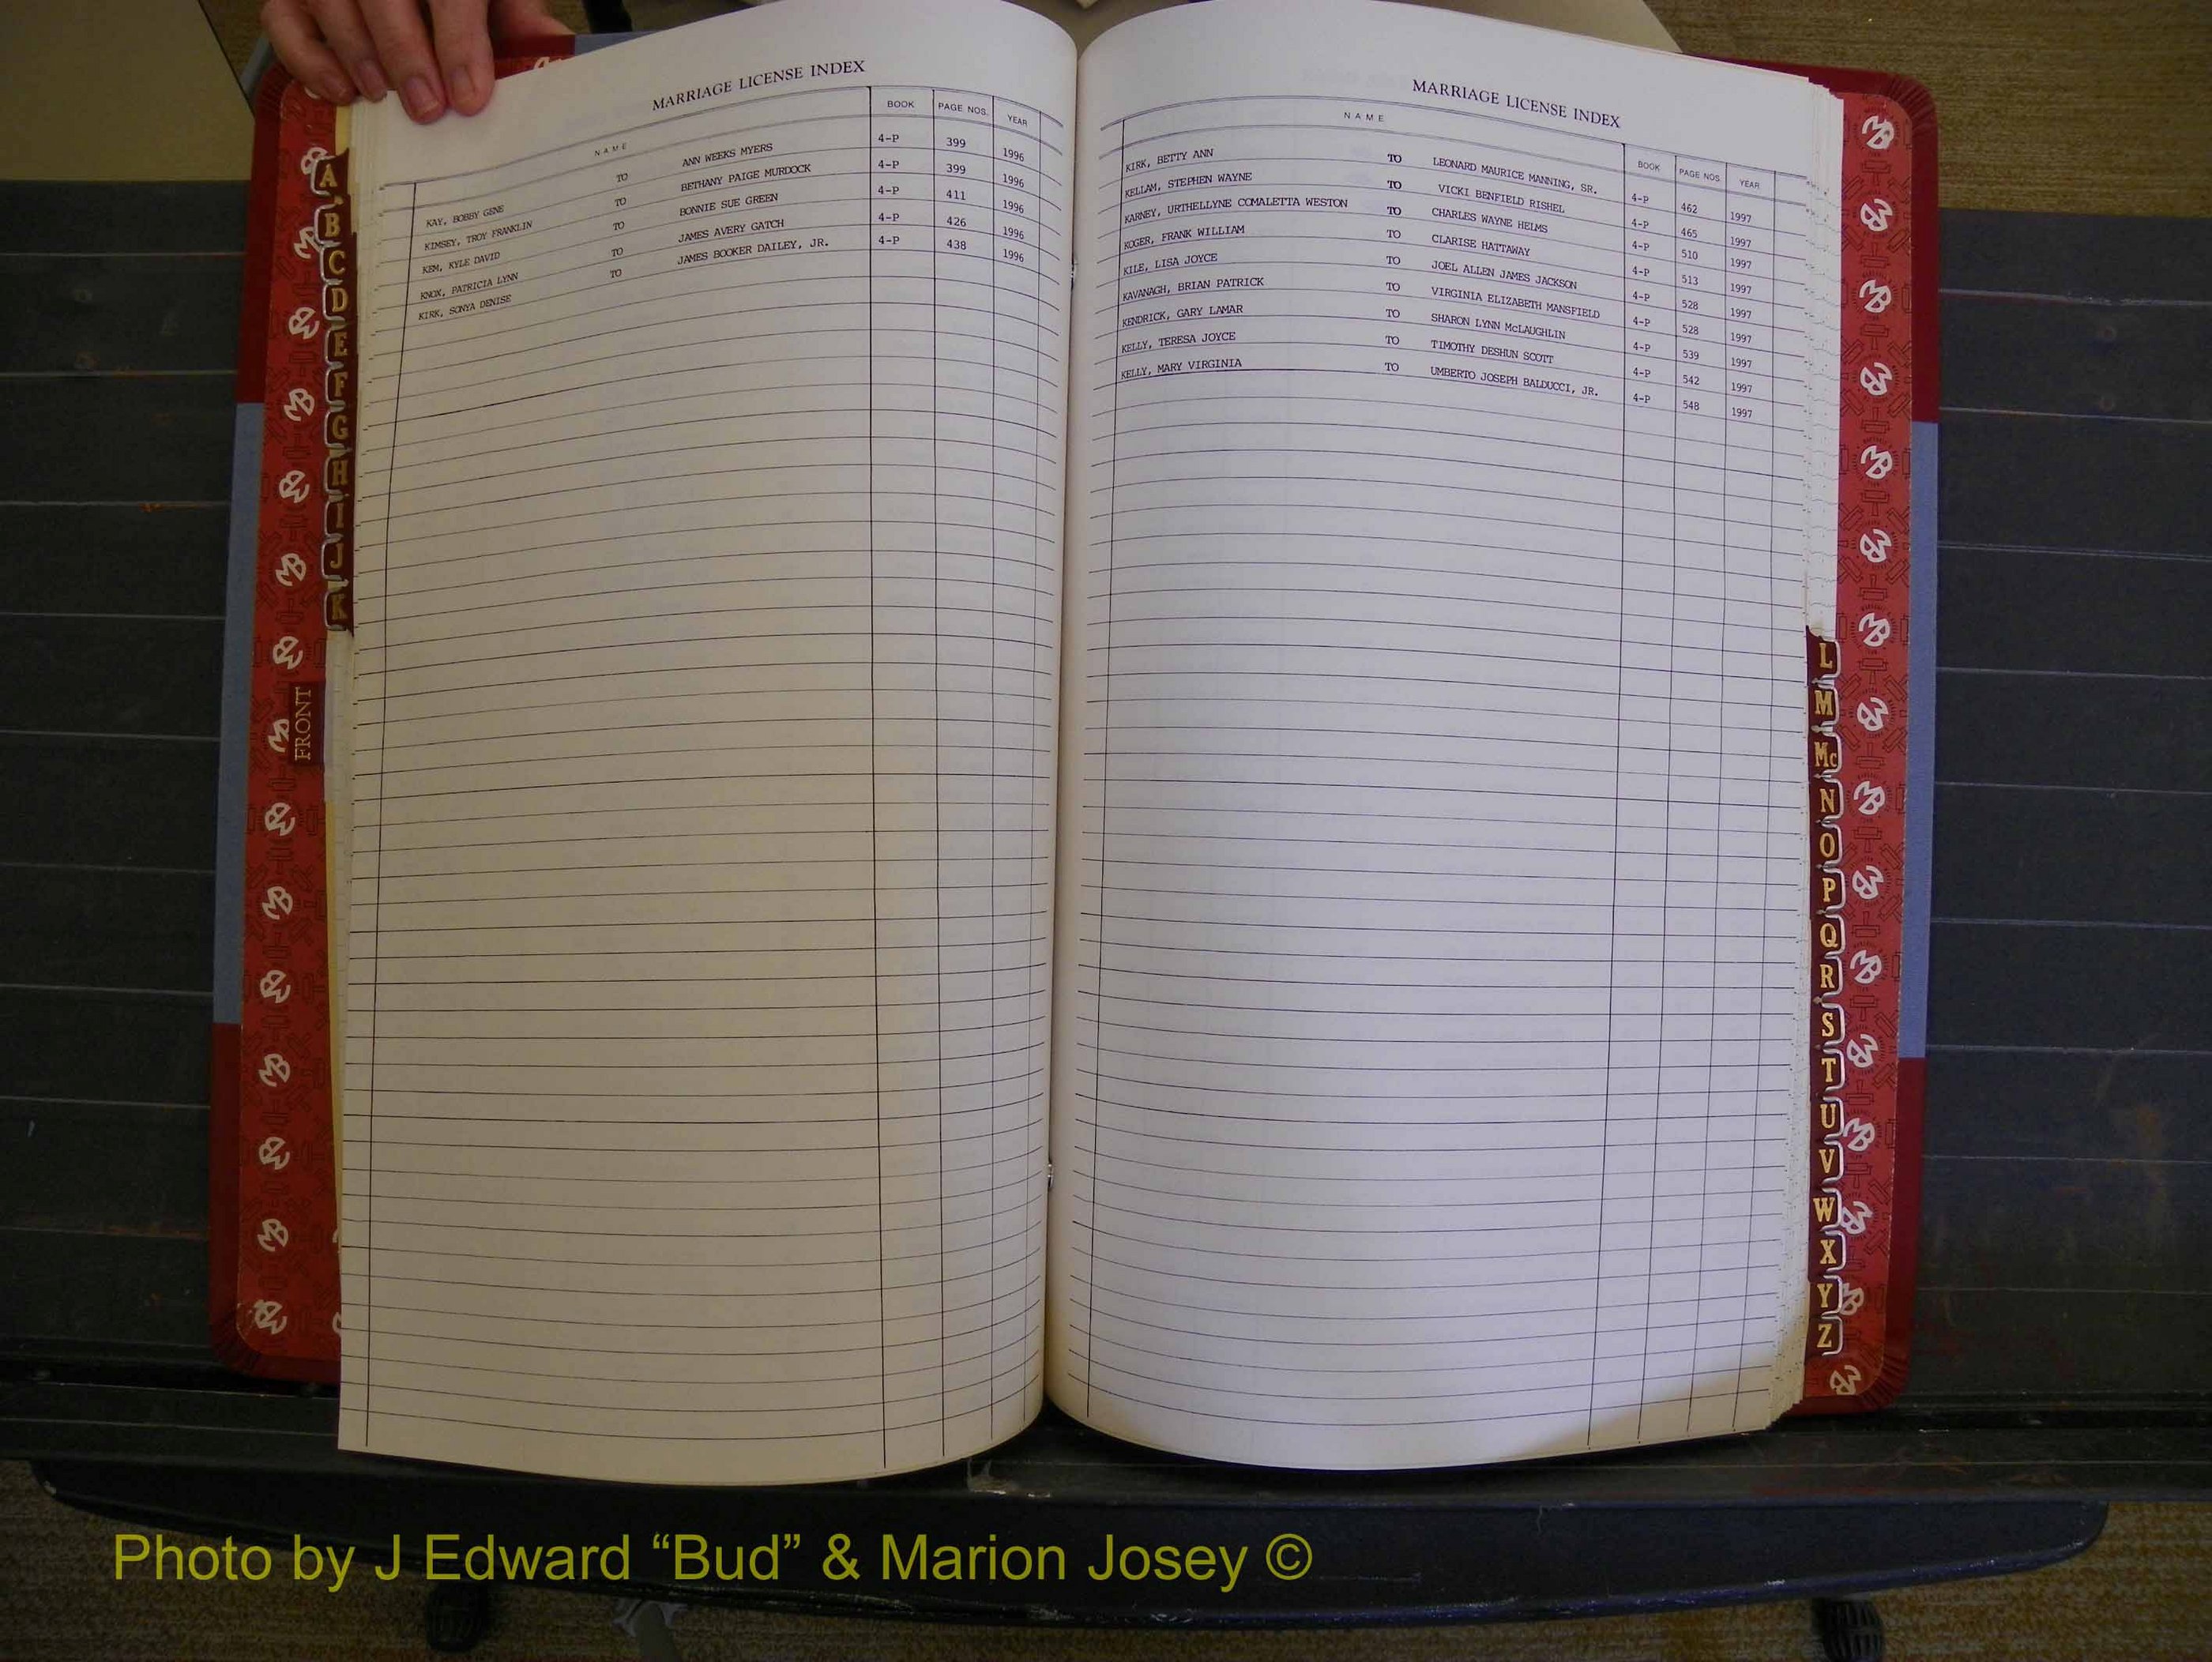 MARRIAGE LICENSE INDEX
NAME BOOK PAGE NOS. YEAR
KAY, BOBBY GENE TO ANN WEEKS MYERS 4-P 399 1996
KIMSEY, TROY FRANKLIN TO BETHANY PAIGE MURDOCK 4-P 399 1996
KEM, KYLE DAVID TO BONNIE SUE GREEN 4-P 411 1996
KNOX, PATRICIA LYNN TO JAMES AVERY GATCH 4-P 426 1996
KIRK, SONYA DENISE TO JAMES BOOKER DAILEY, JR. 4-P 438 1996
MARRIAGE LICENSE INDEX
NAME BOOK PAGE NOS. YEAR
KIRK, BETTY ANN TO LEONARD MAURICE MANNING, SR. 4-P 462 1997
KELLAM, STEPHEN WAYNE TO VICKI BENFIELD RISHEL 4-P 465 1997
KARNEY, URTHELLYNE COMALETTA WESTON TO CHARLES WAYNE HELMS 4-P 510 1997
KOGER, FRANK WILLIAM TO CLARISE HATTAWAY 4-P 513 1997
KILE, LISA JOYCE TO JOEL ALLEN JAMES JACKSON 4-P 528 1997
KAVANAGH, BRIAN PATRICK TO VIRGINIA ELIZABETH MANSFIELD 4-P 528 1997
KENDRICK, GARY LAMAR TO SHARON LYNN McLAUGHLIN 4-P 539 1997
KELLY, TERESA JOYCE TO TIMOTHY DESHUN SCOTT 4-P 542 1997
KELLY, MARY VIRGINIA TO UMBERTO JOSEPH BALDUCCI, JR. 4-P 548 1997
A
B
C
D
E
F
G
H
I
J
K
FRONT
L
M
Mc
N
O
P
Q
R
S
T
U
V
W
X
Y
Z
Photo by J Edward “Bud” & Marion Josey ©